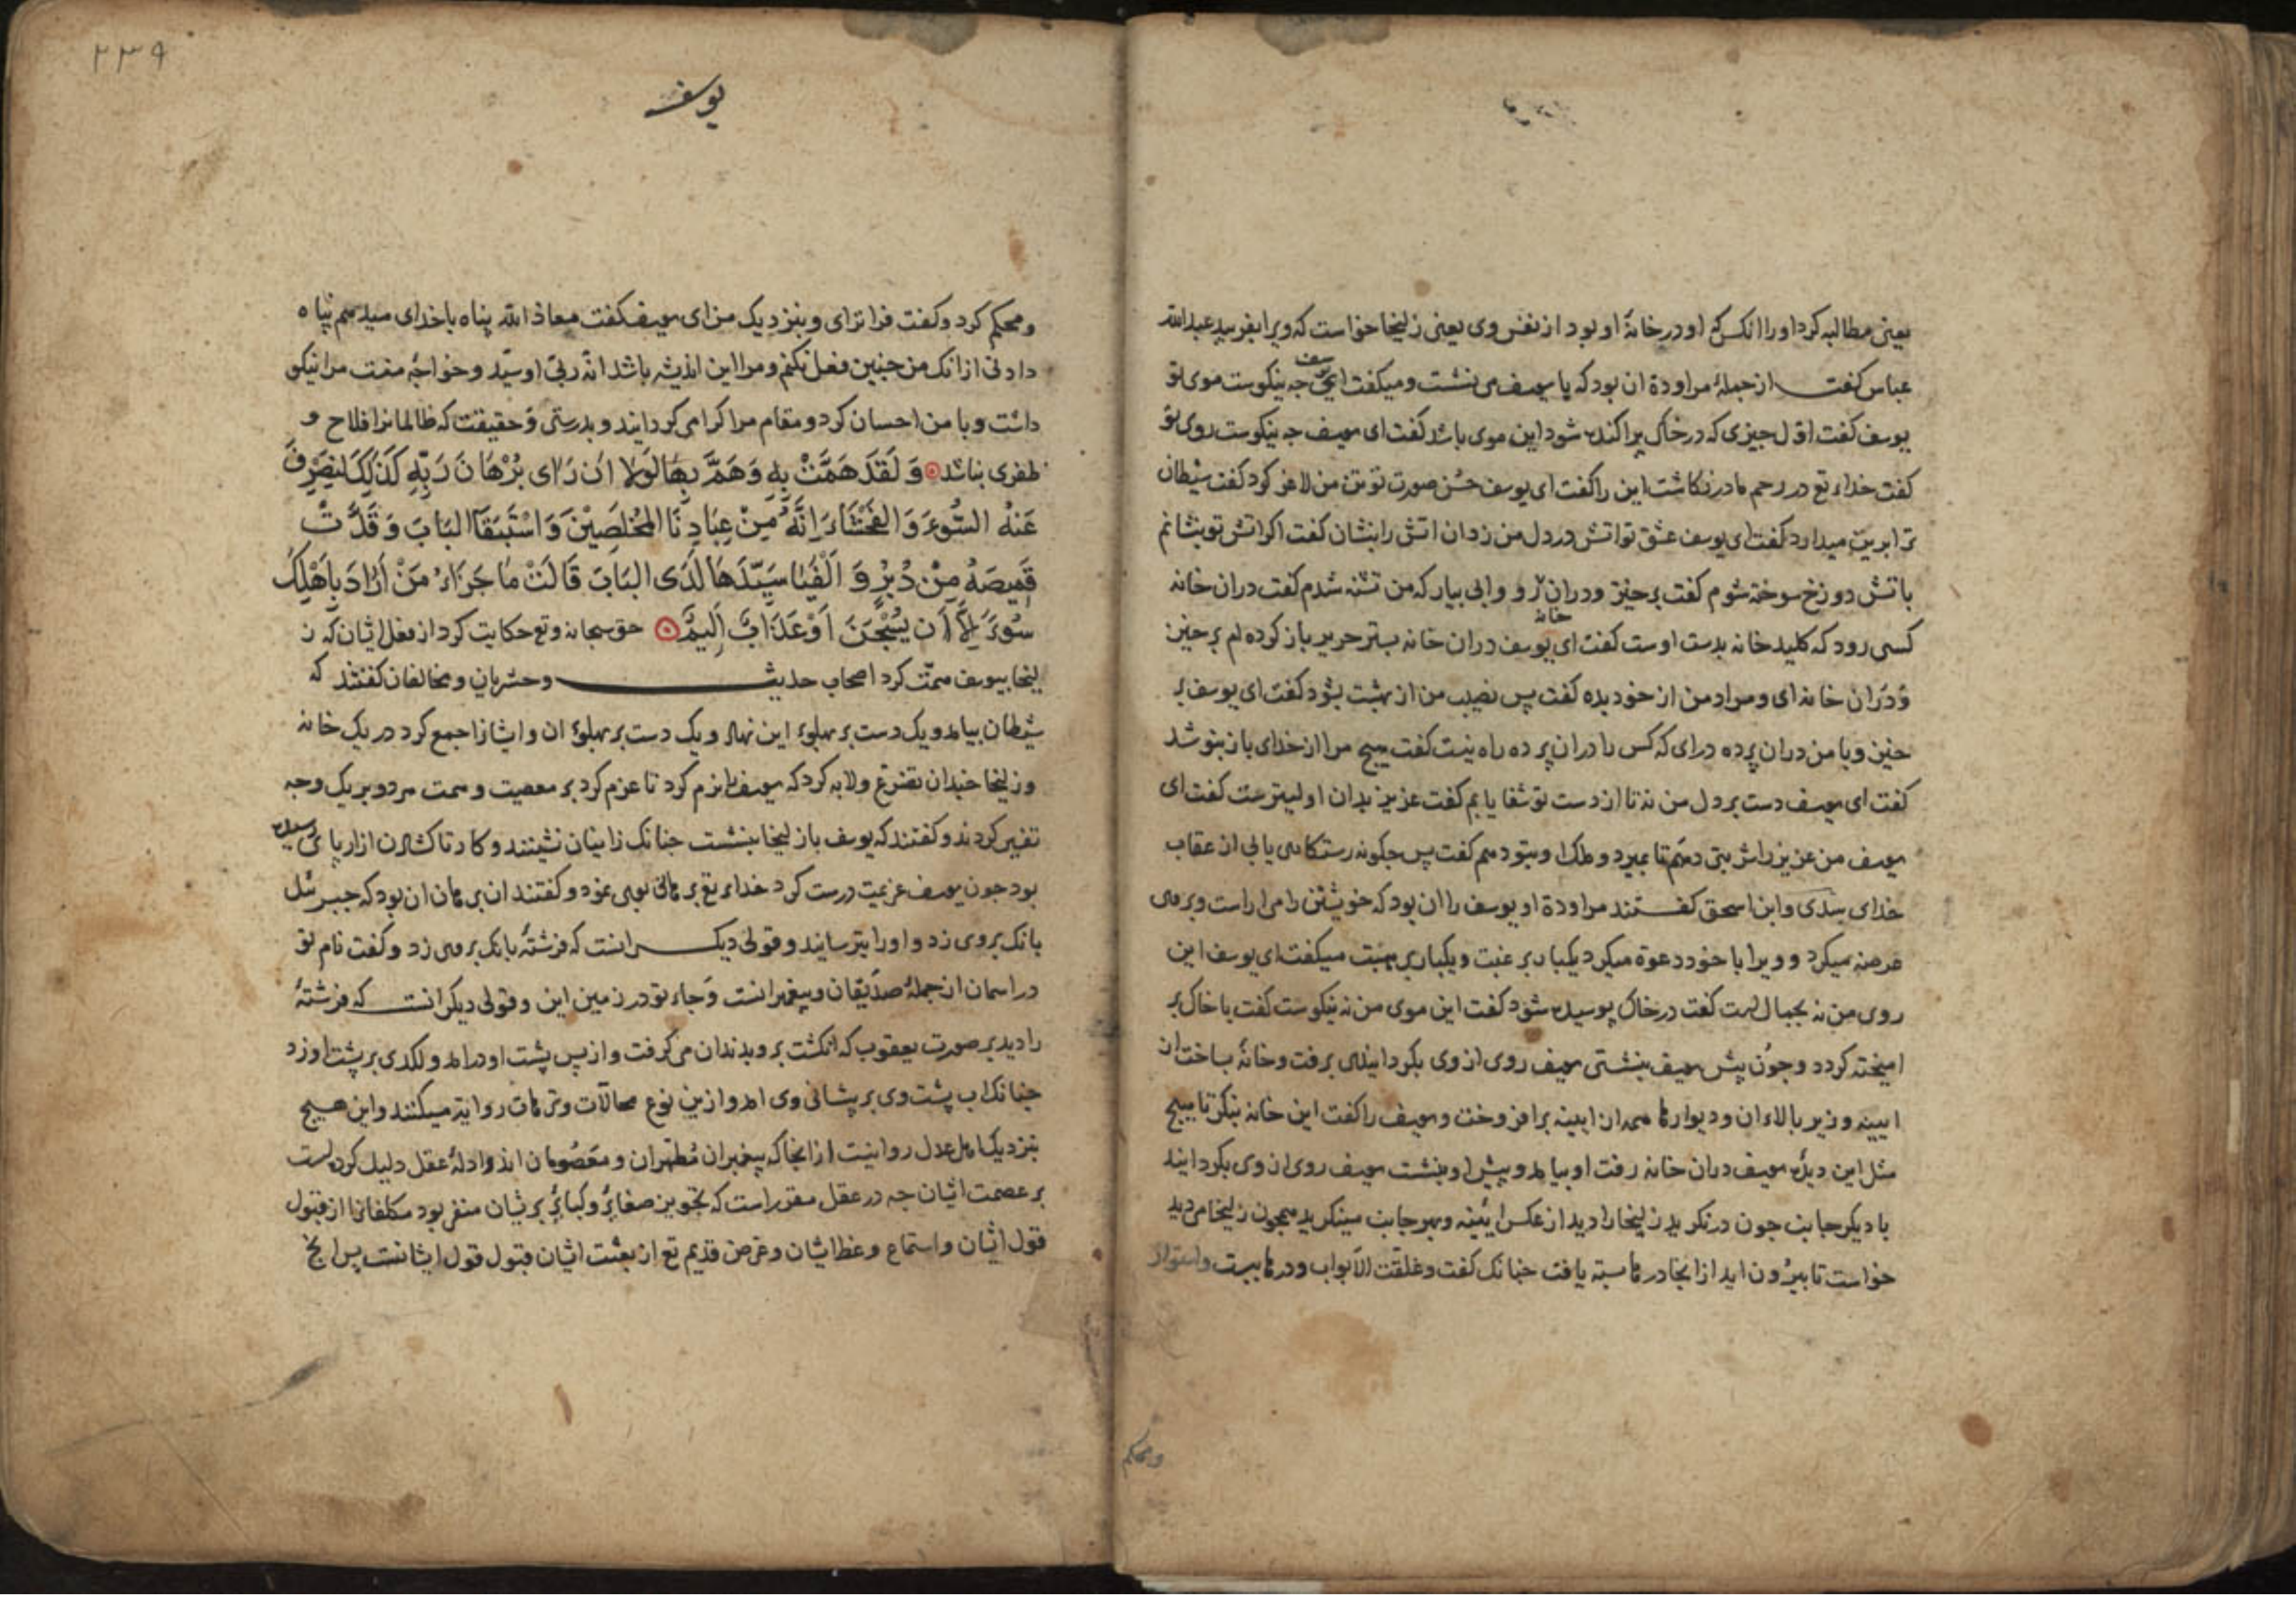 یعنی مطالبه کرد او را انکس که او در خانۀ او بود از نفس وی یعنی زلیخا خواست که ویرا بفریبد عبدالله
عباس کفت از جملۀ مراودة ان بود که با یوسف می نشست و میکفت ای یوسف جه نیکوست موی تو
یوسف کفت اول جیزی که در خاک پراکنده شود این موی باشد کفت ای یوسف جه نیکوست روی تو
کفت خداء تع در رحم مادر نکاشت این را کفت ای یوسف حسن صورت تو تن من لاغر کرد کفت شیطان
ترا برین میدارد کفت ای یوسف عشق تو اتش در دل من زد ان اتش را بنشان کفت اکر اتش تو بنشانم
باتش دوزخ سوخته شوم کفت برخیز و در ان رو و ابی بیار که من تشنه شدم کفت در ان خانه
خانه
کسی رود که کلید خانه بدست اوست کفت ای یوسف در ان خانه بستر حریر باز کرده ام برخیز
و در ان خانه ای و مراد من از خود بده کفت پس نصیب من از بهشت بشود کفت ای یوسف بر
خیز و با من در ان پرده درای که کس را در ان پرده راه نیست کفت هیج مرا از خدای باز بنوشد
کفت ای یوسف دست بر دل من نه تا از دست تو شفا یابم کفت عزیز بدان اولیترست کفت ای
یوسف من عزیز را شربتی دهم تا بمیرد و ملک او بتو دهم کفت پس جکونه رستکاری یابی از عقاب
خدای سدی و ابن اسحق کفتند مراودة او یوسف را ان بود که خویشتن را می اراست و بر وی
عرضه میکرد و ویرا با خود دعوة میکرد یکبار برغبت و یکبار برهبت میکفت ای یوسف این
روی من نه بجمال است کفت در خاک پوسیده شود کفت این موی من نه نیکوست کفت با خاک بر
امیخته کردد و جون پیش یوسف بنشستی یوسف روی از وی بکردانیدی برفت و خانۀ بساخت از
ایینه و زیر بالاء ان و دیوارها همه از ایینه برافروخت و یوسف را کفت این خانه بنکر تا هیج
مثل این دیدۀ یوسف در ان خانه رفت او بیامد و پیش او بنشست یوسف روی از وی بکردانید
با دیکر جانب جون درنکرید زلیخا را دید از عکس ایینه و بهر جانب مینکرید همجون زلیخا می دید
خواست تا بیرون اید از انجا درها بسته یافت جنانک کفت و غلقت الابواب و درها ببست و استوار
ومحکم
۲۳۹
یوسف
و محکم کرد و کفت فراترای و بنزدیک من ای یوسف کفت معاذ الله پناه با خدای میدهم پناه
دادنی از انک من جنین فعل نکنم و مرا این اندیشه باشد انه ربی او سید و خواجه منست مرا نیکو
داشت و با من احسان کرد و مقام مرا کرامی کردانید و بدرستی و حقیقت که ظالمانرا فلاح و
ظفری نباشد وَلَقَدْ هَمَّتْ بِهِ وَهَمَّ بِهَا لَوْلَا اَنْ رَاٰی بُرْهَانَ رَبِّهِ كَذٰلِكَ لِنَصْرِفَ
عَنْهُ السُّوءَ وَالفَحْشَاءَ اِنَّهُ مِنْ عِبَادِنَا المُخْلَصِيْنَ وَاسْتَبَقَا البَابَ وَقَدَّتْ
قَمِيصَهُ مِنْ دُبُرٍ وَ اَلْفَيَا سَيِّدَهَا لَدَی البَابَ قَالَتْ مَا جَزَاءُ مَنْ اَرَادَ بِاَهْلِكَ
سُوءً اِلَّا اَن يُسْجَنَ اَوْ عَذَابٌ اَلِيمٌ حق سبحانه و تع حکایت کرد از فعل ایشان که ز
لیخا بیوسف همت کرد اصحاب حدیث وحشویان و مخالفان کفتند که
شیطان بیامد و یک دست بر پهلوء این نهاد و یک دست بر پهلوء ان و ایشانرا جمع کرد در یک خانه
و زلیخا جندان تضرع و لابه کرد که یوسف را نرم کرد تا عزم کرد بر معصیت و همت هر دو بر یک وجه
تفسیر کردند و کفتند که یوسف با زلیخا بنشست جنانک زانیان نشینند و کار تا کشادن ازار پای رسیده
بود جون یوسف عزیمت درست کرد خداء تع برهانی بوی نمود و کفتند ان برهان ان بود که جبرئیل
بانک بر وی زد و او را بترسانید و قولی دیکر انست که فرشتۀ بانک بر وی زد و کفت نام تو
در اسمان از جملۀ صدیقان و پیغمبرانست و جاء تو در زمین این و قولی دیکر انست که فرشتۀ
را دید بر صورت یعقوب که انکشت بر و بدندان می کرفت و از پس پشت او درامد و لکدی بر پشت او زد
جنانک اب پشت وی بر پشانی وی امد و ازین نوع محالات و ترهات روایة میکنند و این هیج
بنزدیک اهل عدل روا نیست از انجا که پیغمبران مطهران و معصومان اند و ادلۀ عقل دلیل کرده است
بر عصمت ایشان جه در عقل مقرر است که تجویز صغایر و کبایر بر یشان منفر بود مکلفانرا از قبول
قول ایشان و استماع وعظ ایشان و غرض قدیم تع از بعثت ایشان قبول قول ایشانست پس انج